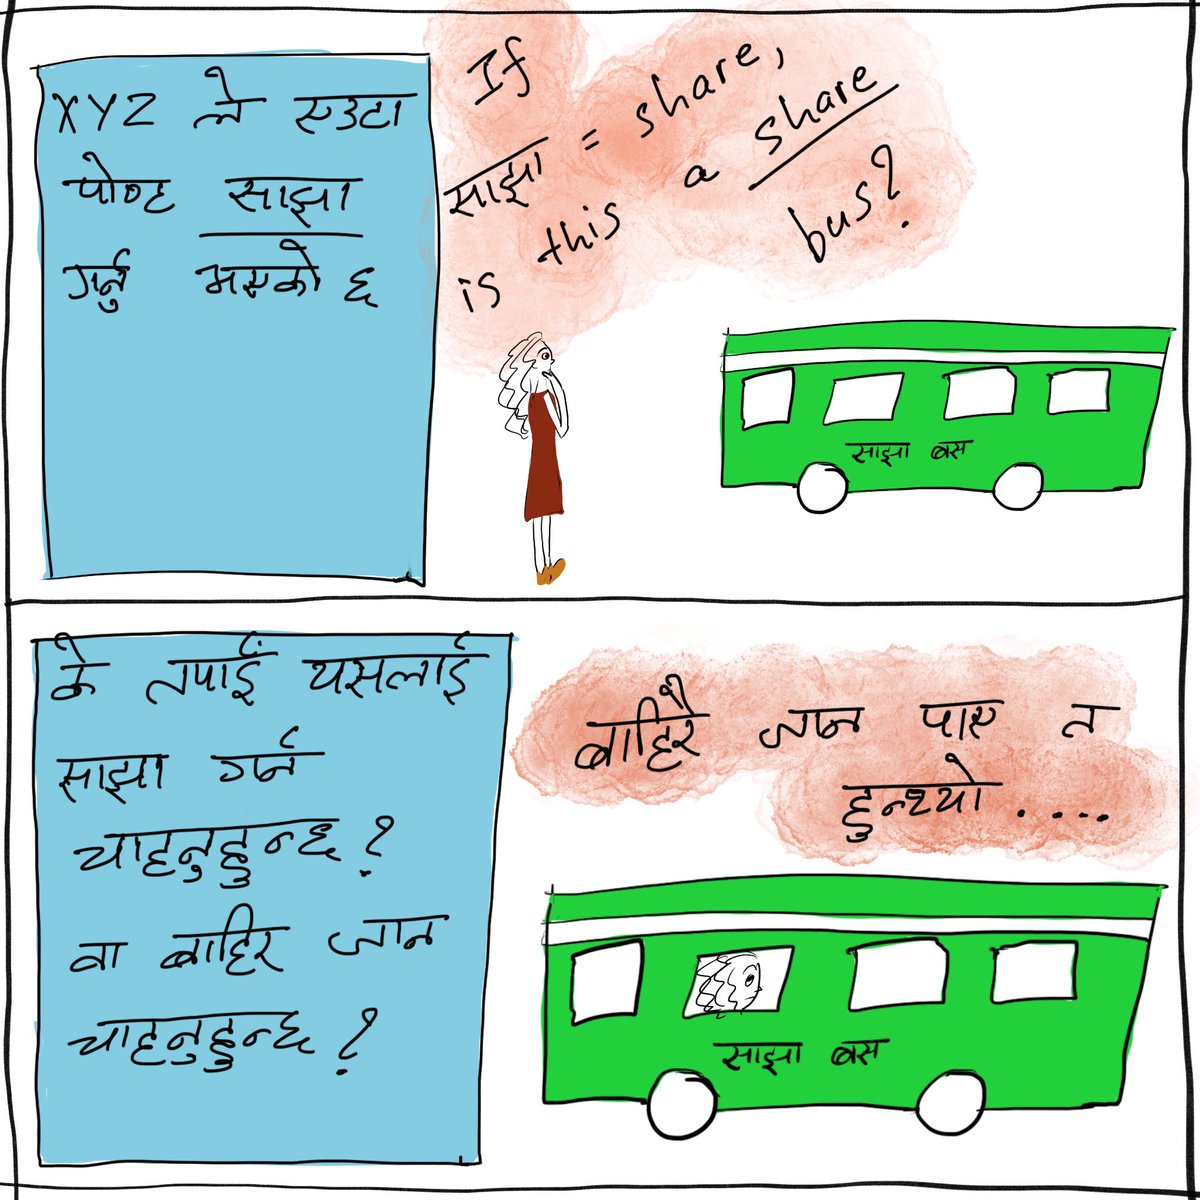 XYZ ले एउटा
पोष्ट साझा
गर्नु भएको छ
If
साझा = share,
is this a share
bus?
साझा बस
के तपाईं यसलाई
साझा गर्न
चाहनुहुन्छ?
वा बाहिर जान
चाहनुहुन्छ?
बाहिरै जान पाए त
हुन्थ्यो.....
साझा बस